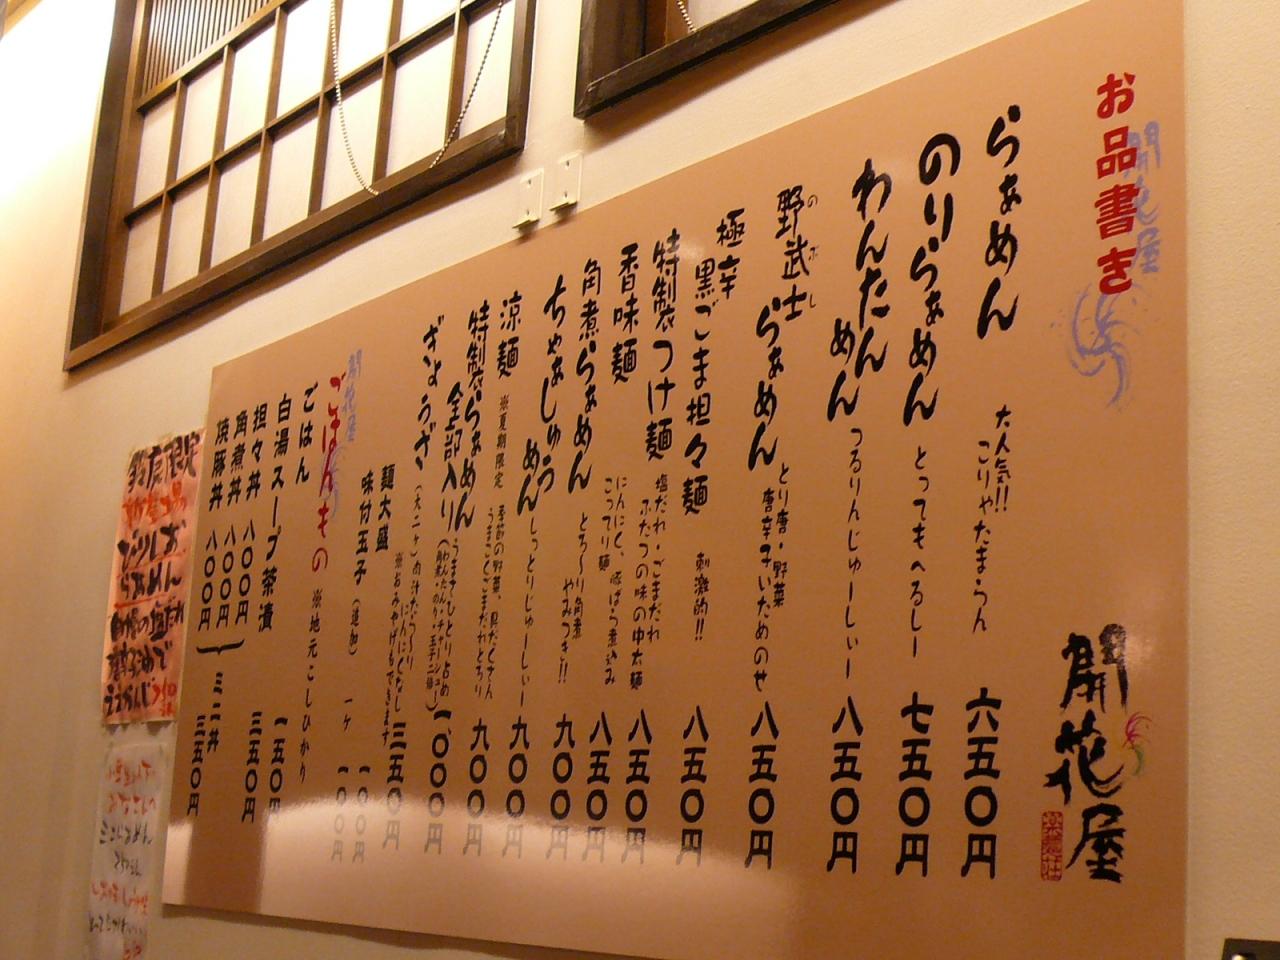 お品書き
開花屋
らぁめん 大人気!! こりゃたまらん 六五〇円
のりらぁめん とってもへるしー 七五〇円
わんたんめん つるりんじゅーしぃー 八五〇円
野武士らぁめん とり唐・野菜 唐辛子いためのせ 八五〇円
のぶし
極辛 黒ごま担々麺 刺激的!! 八五〇円
特製つけ麺 塩だれ・ごまだれ ふたつの味の中太麺 八五〇円
香味麺 にんにく、豚ばら煮込み こってり麺 八五〇円
角煮らぁめん とろ〜り角煮 やみつき!! 九〇〇円
ちゃあしゅうめん しっとりじゅーしぃー 九〇〇円
涼麺 ※夏期限定 季節の野菜、具だくさん うまこくごまだれとろり 九〇〇円
特製らぁめん全部入り うまさひとり占め (わんたん・チャーシュー 角煮・のり・玉子二倍) 一、〇〇〇円
ぎょうざ (大二ヶ) 肉汁たら〜り にんにくなし ※おみやげもできます 三五〇円
麺大盛 一〇〇円
味付玉子 (追加) 一ヶ 一〇〇円
開花屋
ごはんもの ※地元こしひかり
ごはん 一五〇円
白湯スープ茶漬 三五〇円
担々丼 八〇〇円
角煮丼 八〇〇円
焼豚丼 八〇〇円
ミニ丼 三五〇円
開花屋
限定
らぁめん